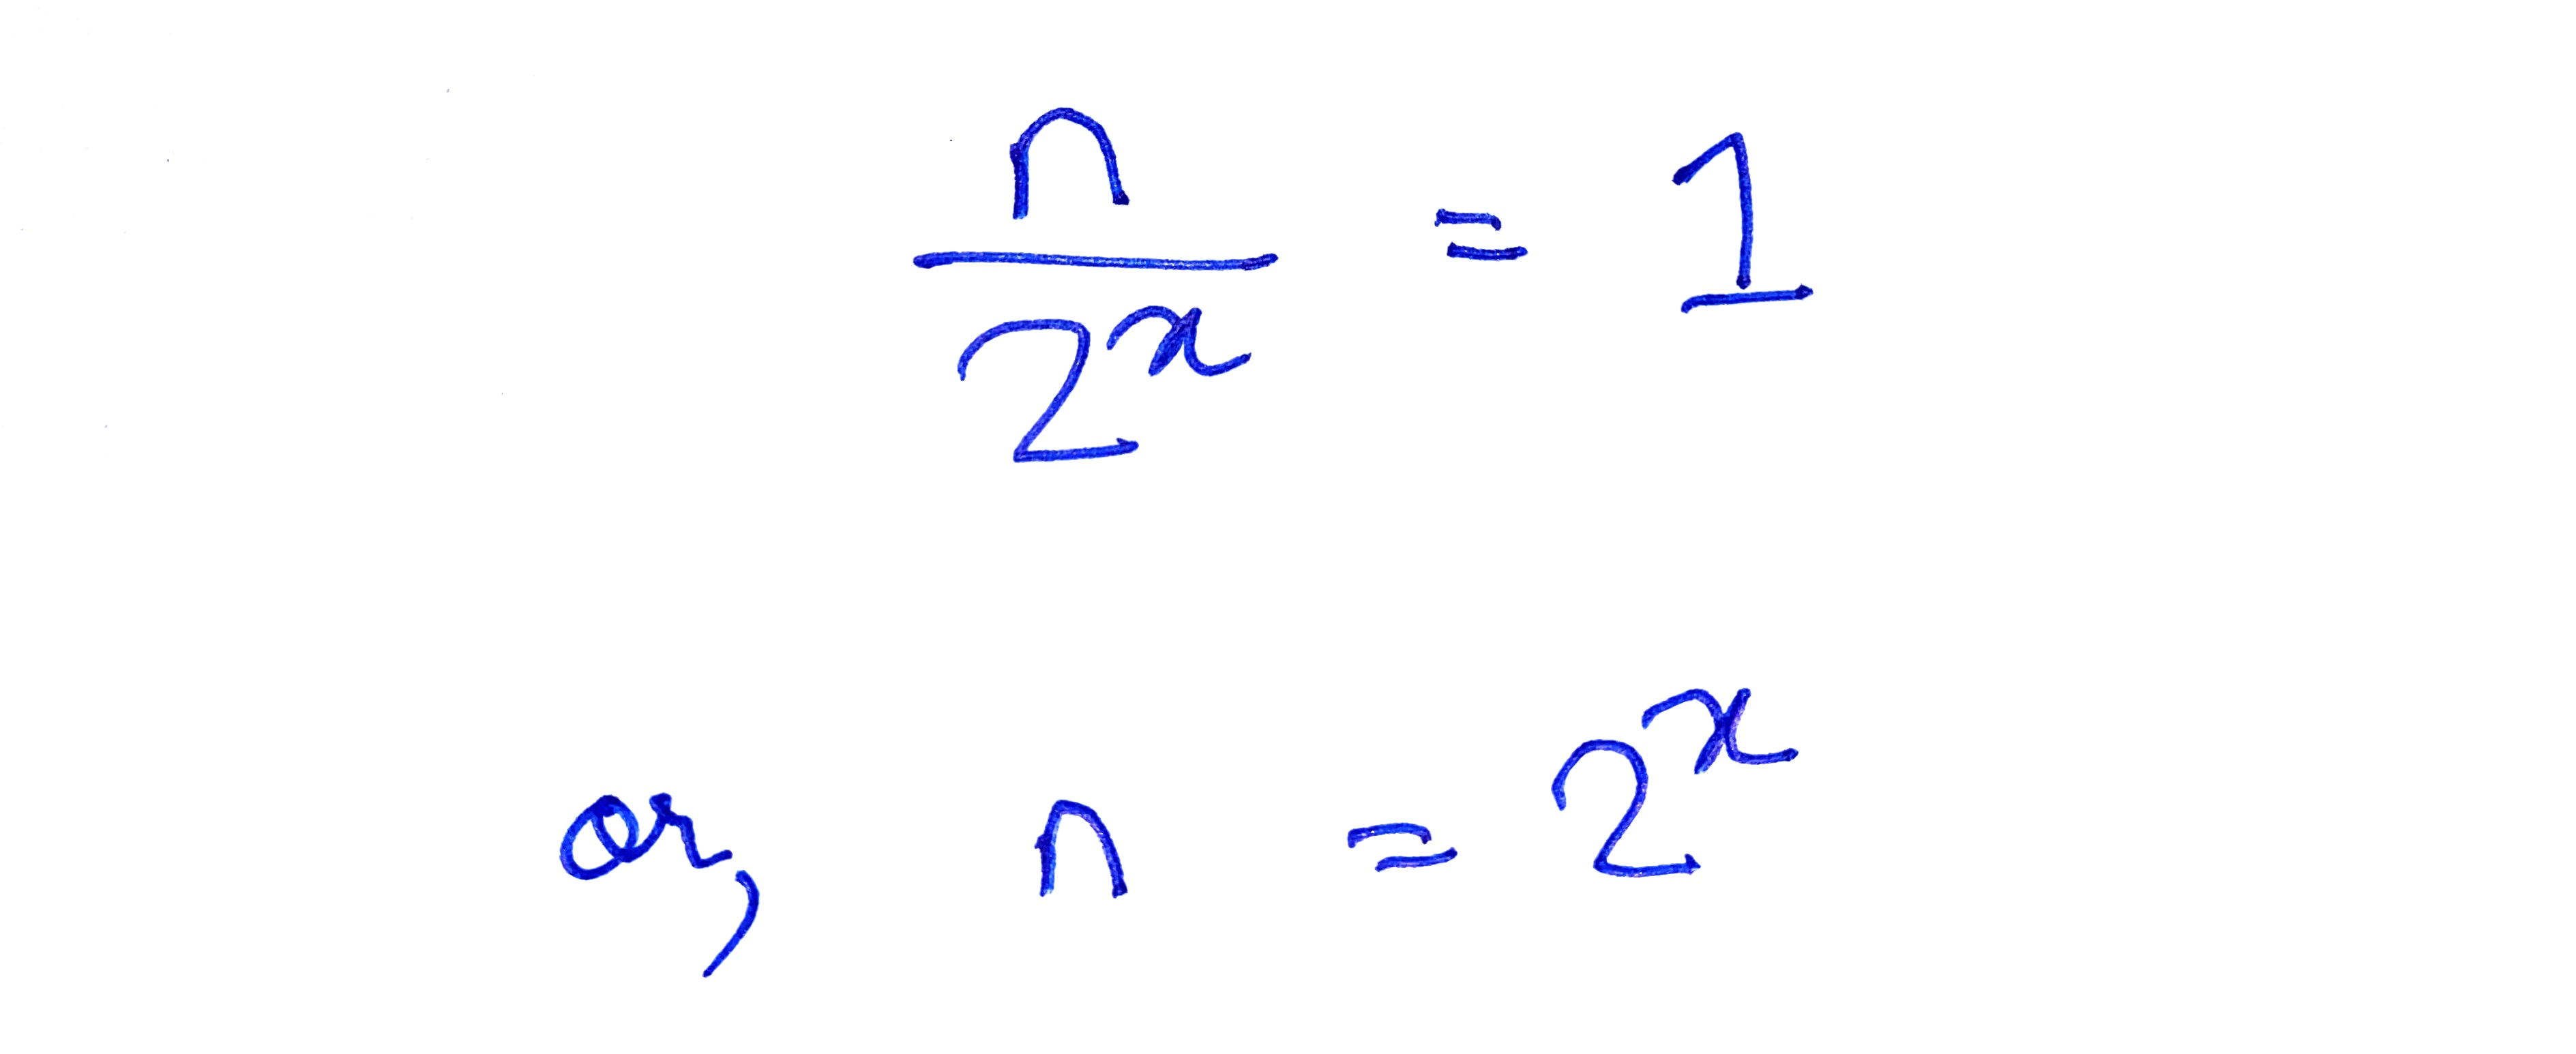 n/2^x = 1
or, n = 2^x